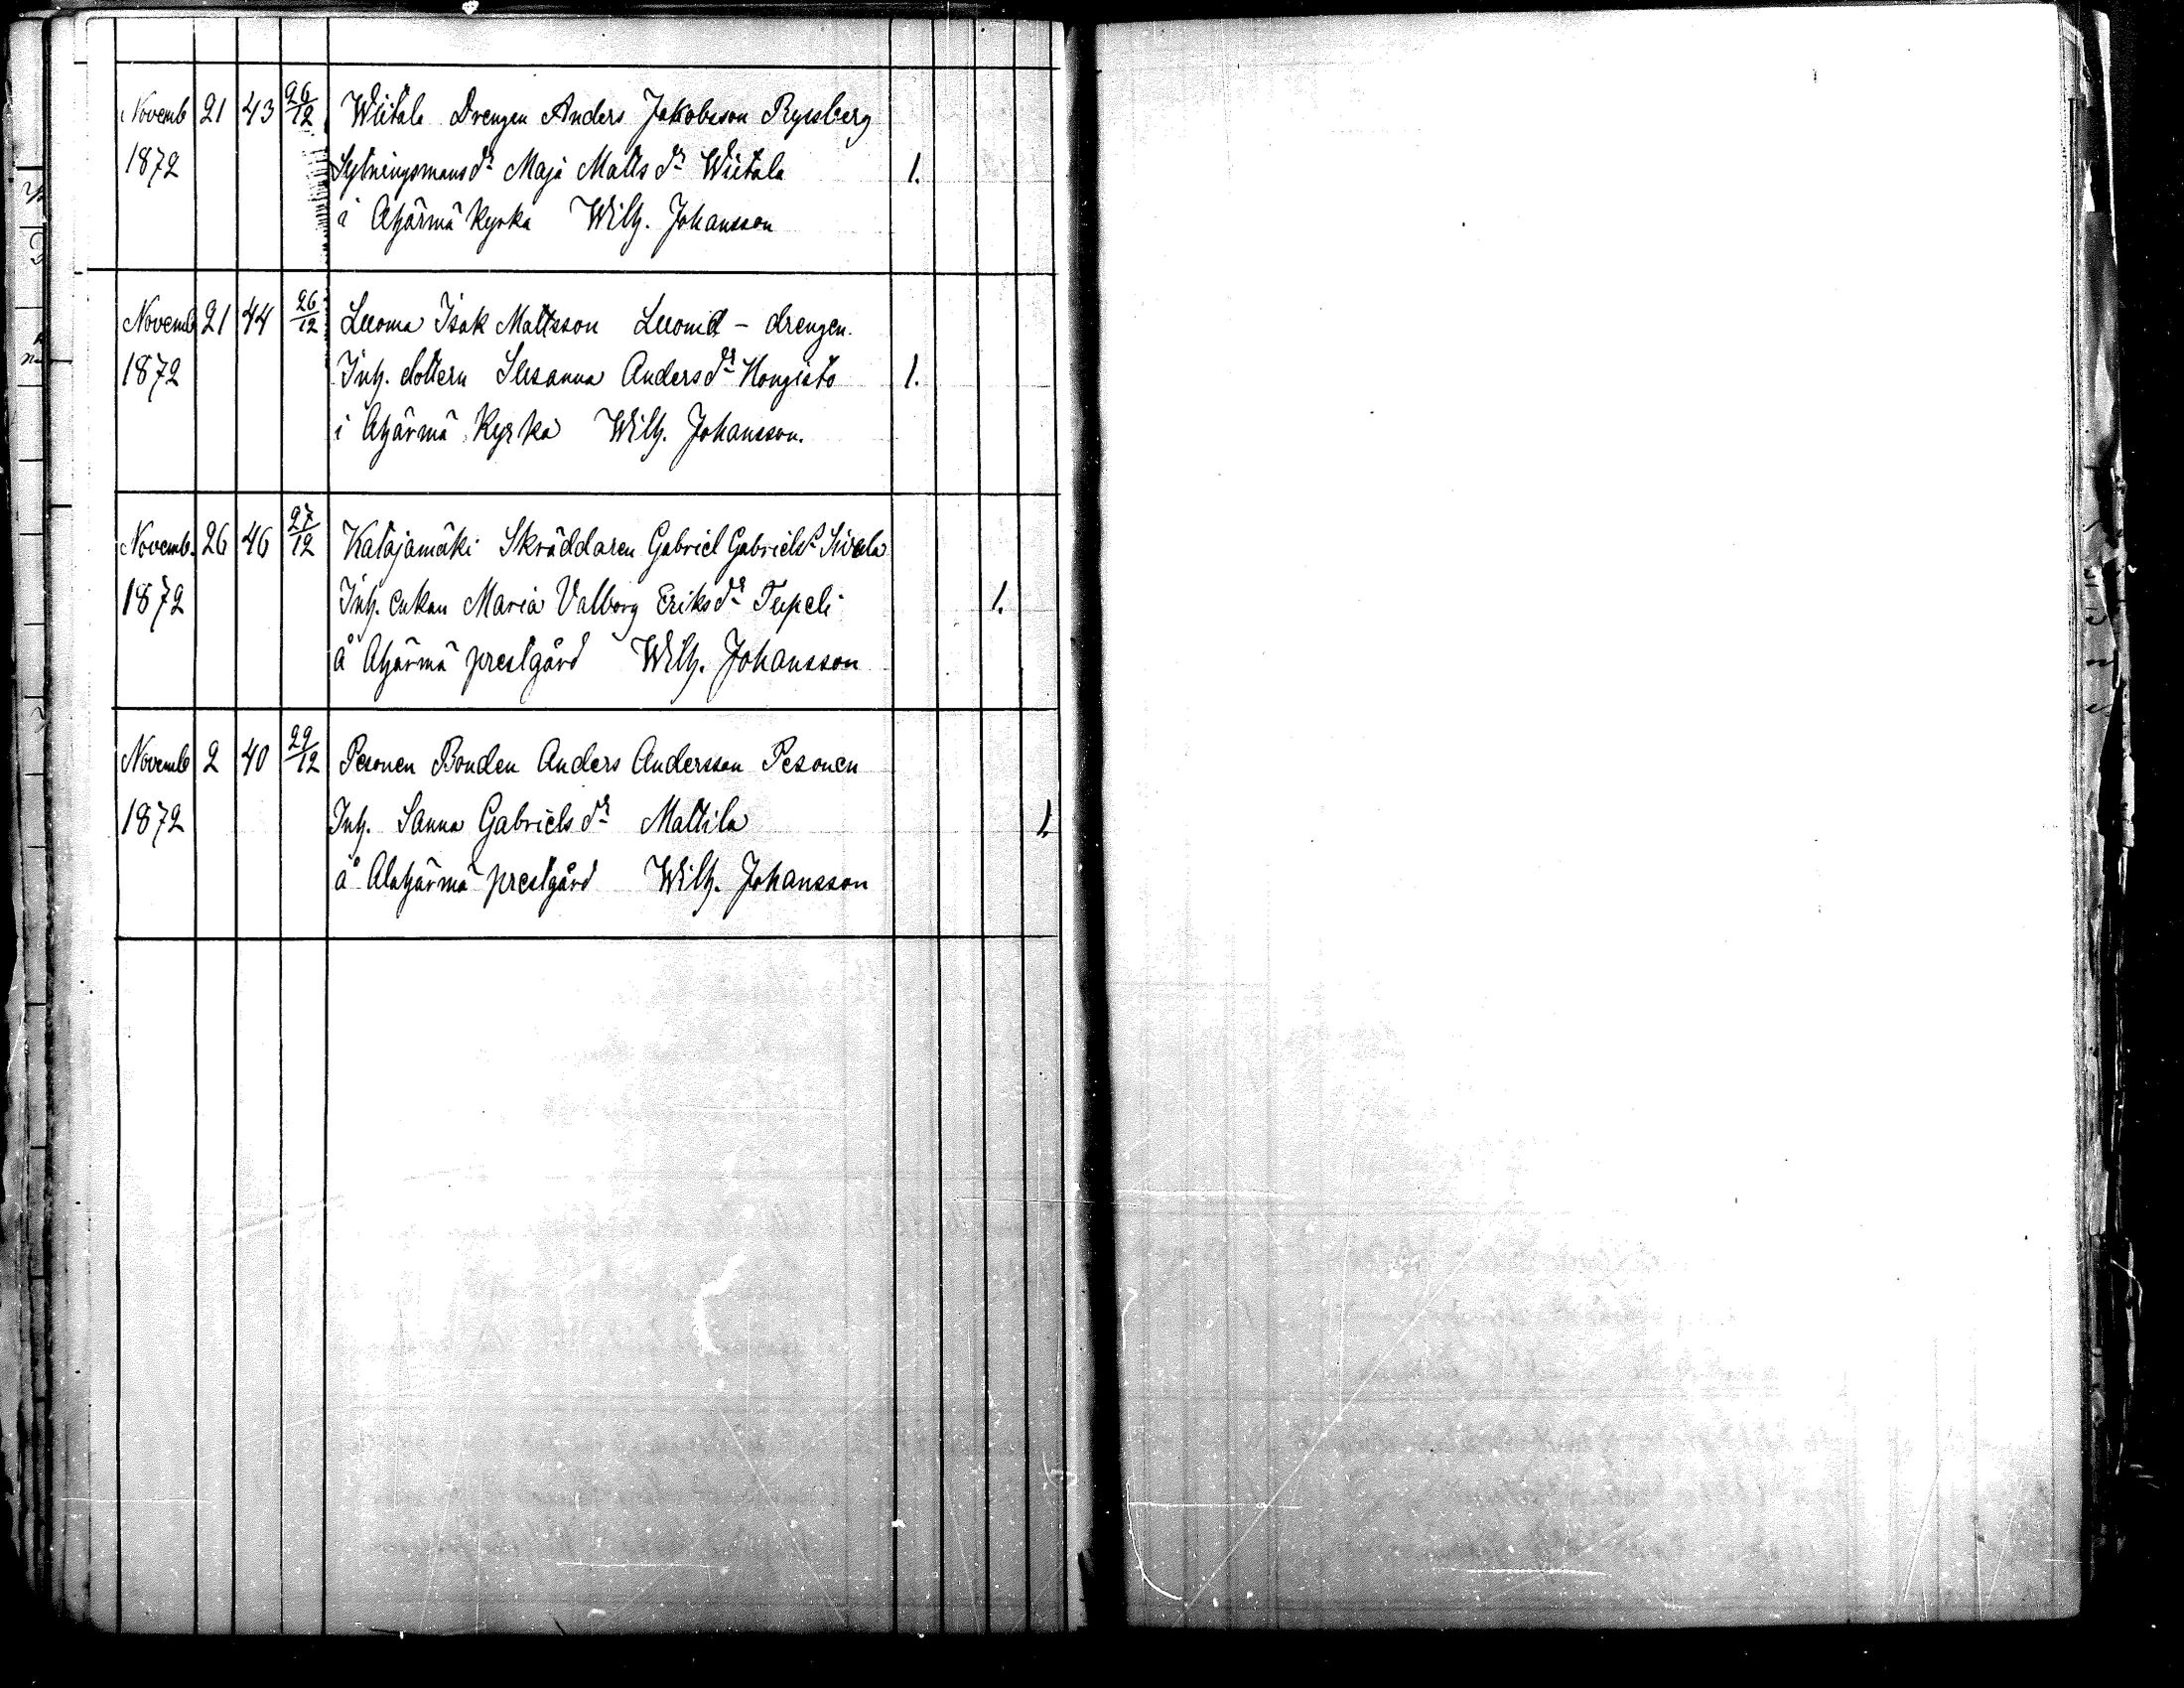 Novemb 21 43 26/12 Wiitala Drengen Anders Jakobsson Ryssberg
1872 Sytningsmans dr Maja Matts dr Wiitala 1.
i Ahärmä Kyrka Wilh. Johansson
Novemb 21 44 26/12 Luoma Isak Mattsson Luoma - drengen.
1872 Inh. dottern Susanna Anders dr Hongisto 1.
i Ahärmä Kyrka Wilh. Johansson.
Novemb. 26 46 27/12 Katajamäki Skräddaren Gabriel Gabriels
1872 Inh. enkan Maria Valborg Eriks dr Tupeli 1.
å Ahärmä prestgård Wilh. Johansson
Novemb 2 40 29/12 Pesonen Bonden Anders Andersson Pesonen
1872 Inh. Sanna Gabriels dr Mattila 1.
å Alahärmä prestgård Wilh. Johansson